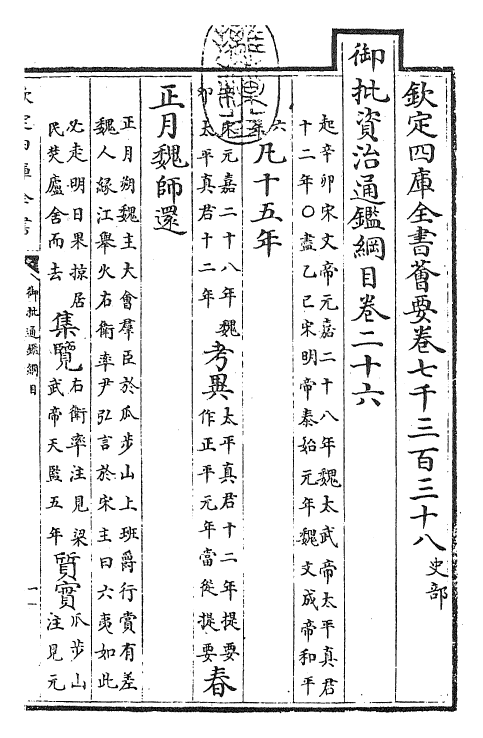 欽定四庫全書薈要卷七千三百三十八 史部
御批資治通鑑綱目卷二十六
起辛卯宋文帝元嘉二十八年魏太武帝太平真君
十二年〇盡乙巳宋明帝泰始元年魏文成帝和平
六年
凡十五年
宋元嘉二十八年魏
太平真君十二年
考異
太平真君十二年提要
作正平元年當從提要
春
正月魏師還
正月朔魏主大會羣臣於瓜步山上班爵行賞有差
魏人緣江舉火右衛率尹弘言於宋主曰六夷如此
必走明日果掠居
民焚廬舍而去
集覽
右衛率注見梁
武帝天監五年
質實
瓜步山
注見元
欽定四庫全書
御批通鑑綱目
一